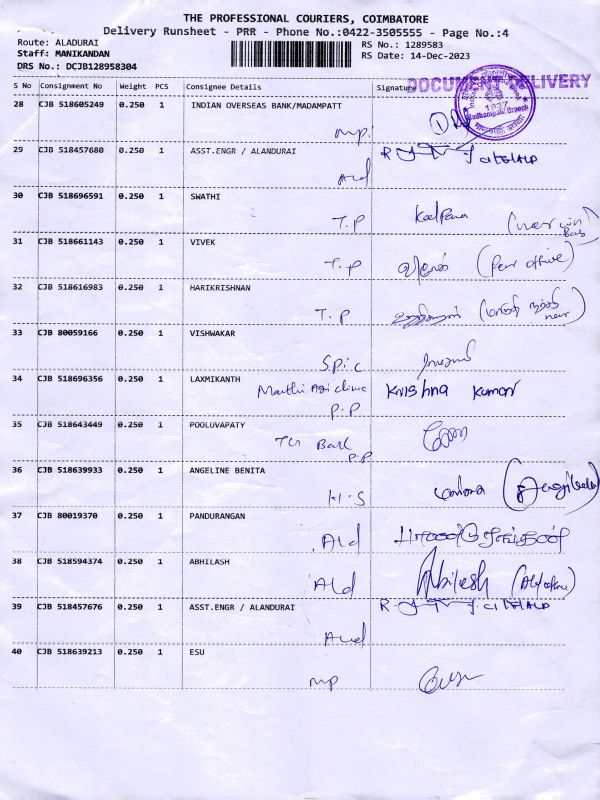 THE PROFESSIONAL COURIERS, COIMBATORE
Delivery Runsheet - PRR - Phone No.:0422-3505555 - Page No.:4
Route: ALADURAI
Staff: MANIKANDAN
DRS No.: DCJB128958304
RS No.: 1289583
RS Date: 14-Dec-2023
DOCUMENT DELIVERY
S No Consignment No Weight PCS Consignee Details Signature
1937
Madhampatti Branch
28 CJB 518605249 0.250 1 INDIAN OVERSEAS BANK/MADAMPATT
mp.
29 CJB 518457680 0.250 1 ASST.ENGR / ALANDURAI
Ald
30 CJB 518696591 0.250 1 SWATHI
T.P Kalpana
31 CJB 518661143 0.250 1 VIVEK
T.P
32 CJB 518616983 0.250 1 HARIKRISHNAN
T.P
33 CJB 80059166 0.250 1 VISHWAKAR
Spic
34 CJB 518696356 0.250 1 LAXMIKANTH
Krishna Kumar
P.P
35 CJB 518643449 0.250 1 POOLUVAPATY
Bank
P.P
36 CJB 518639933 0.250 1 ANGELINE BENITA
H.S
37 CJB 80019370 0.250 1 PANDURANGAN
Ald
38 CJB 518594374 0.250 1 ABHILASH
Ald Abilesh
39 CJB 518457676 0.250 1 ASST.ENGR / ALANDURAI
Ald
40 CJB 518639213 0.250 1 ESU
mp